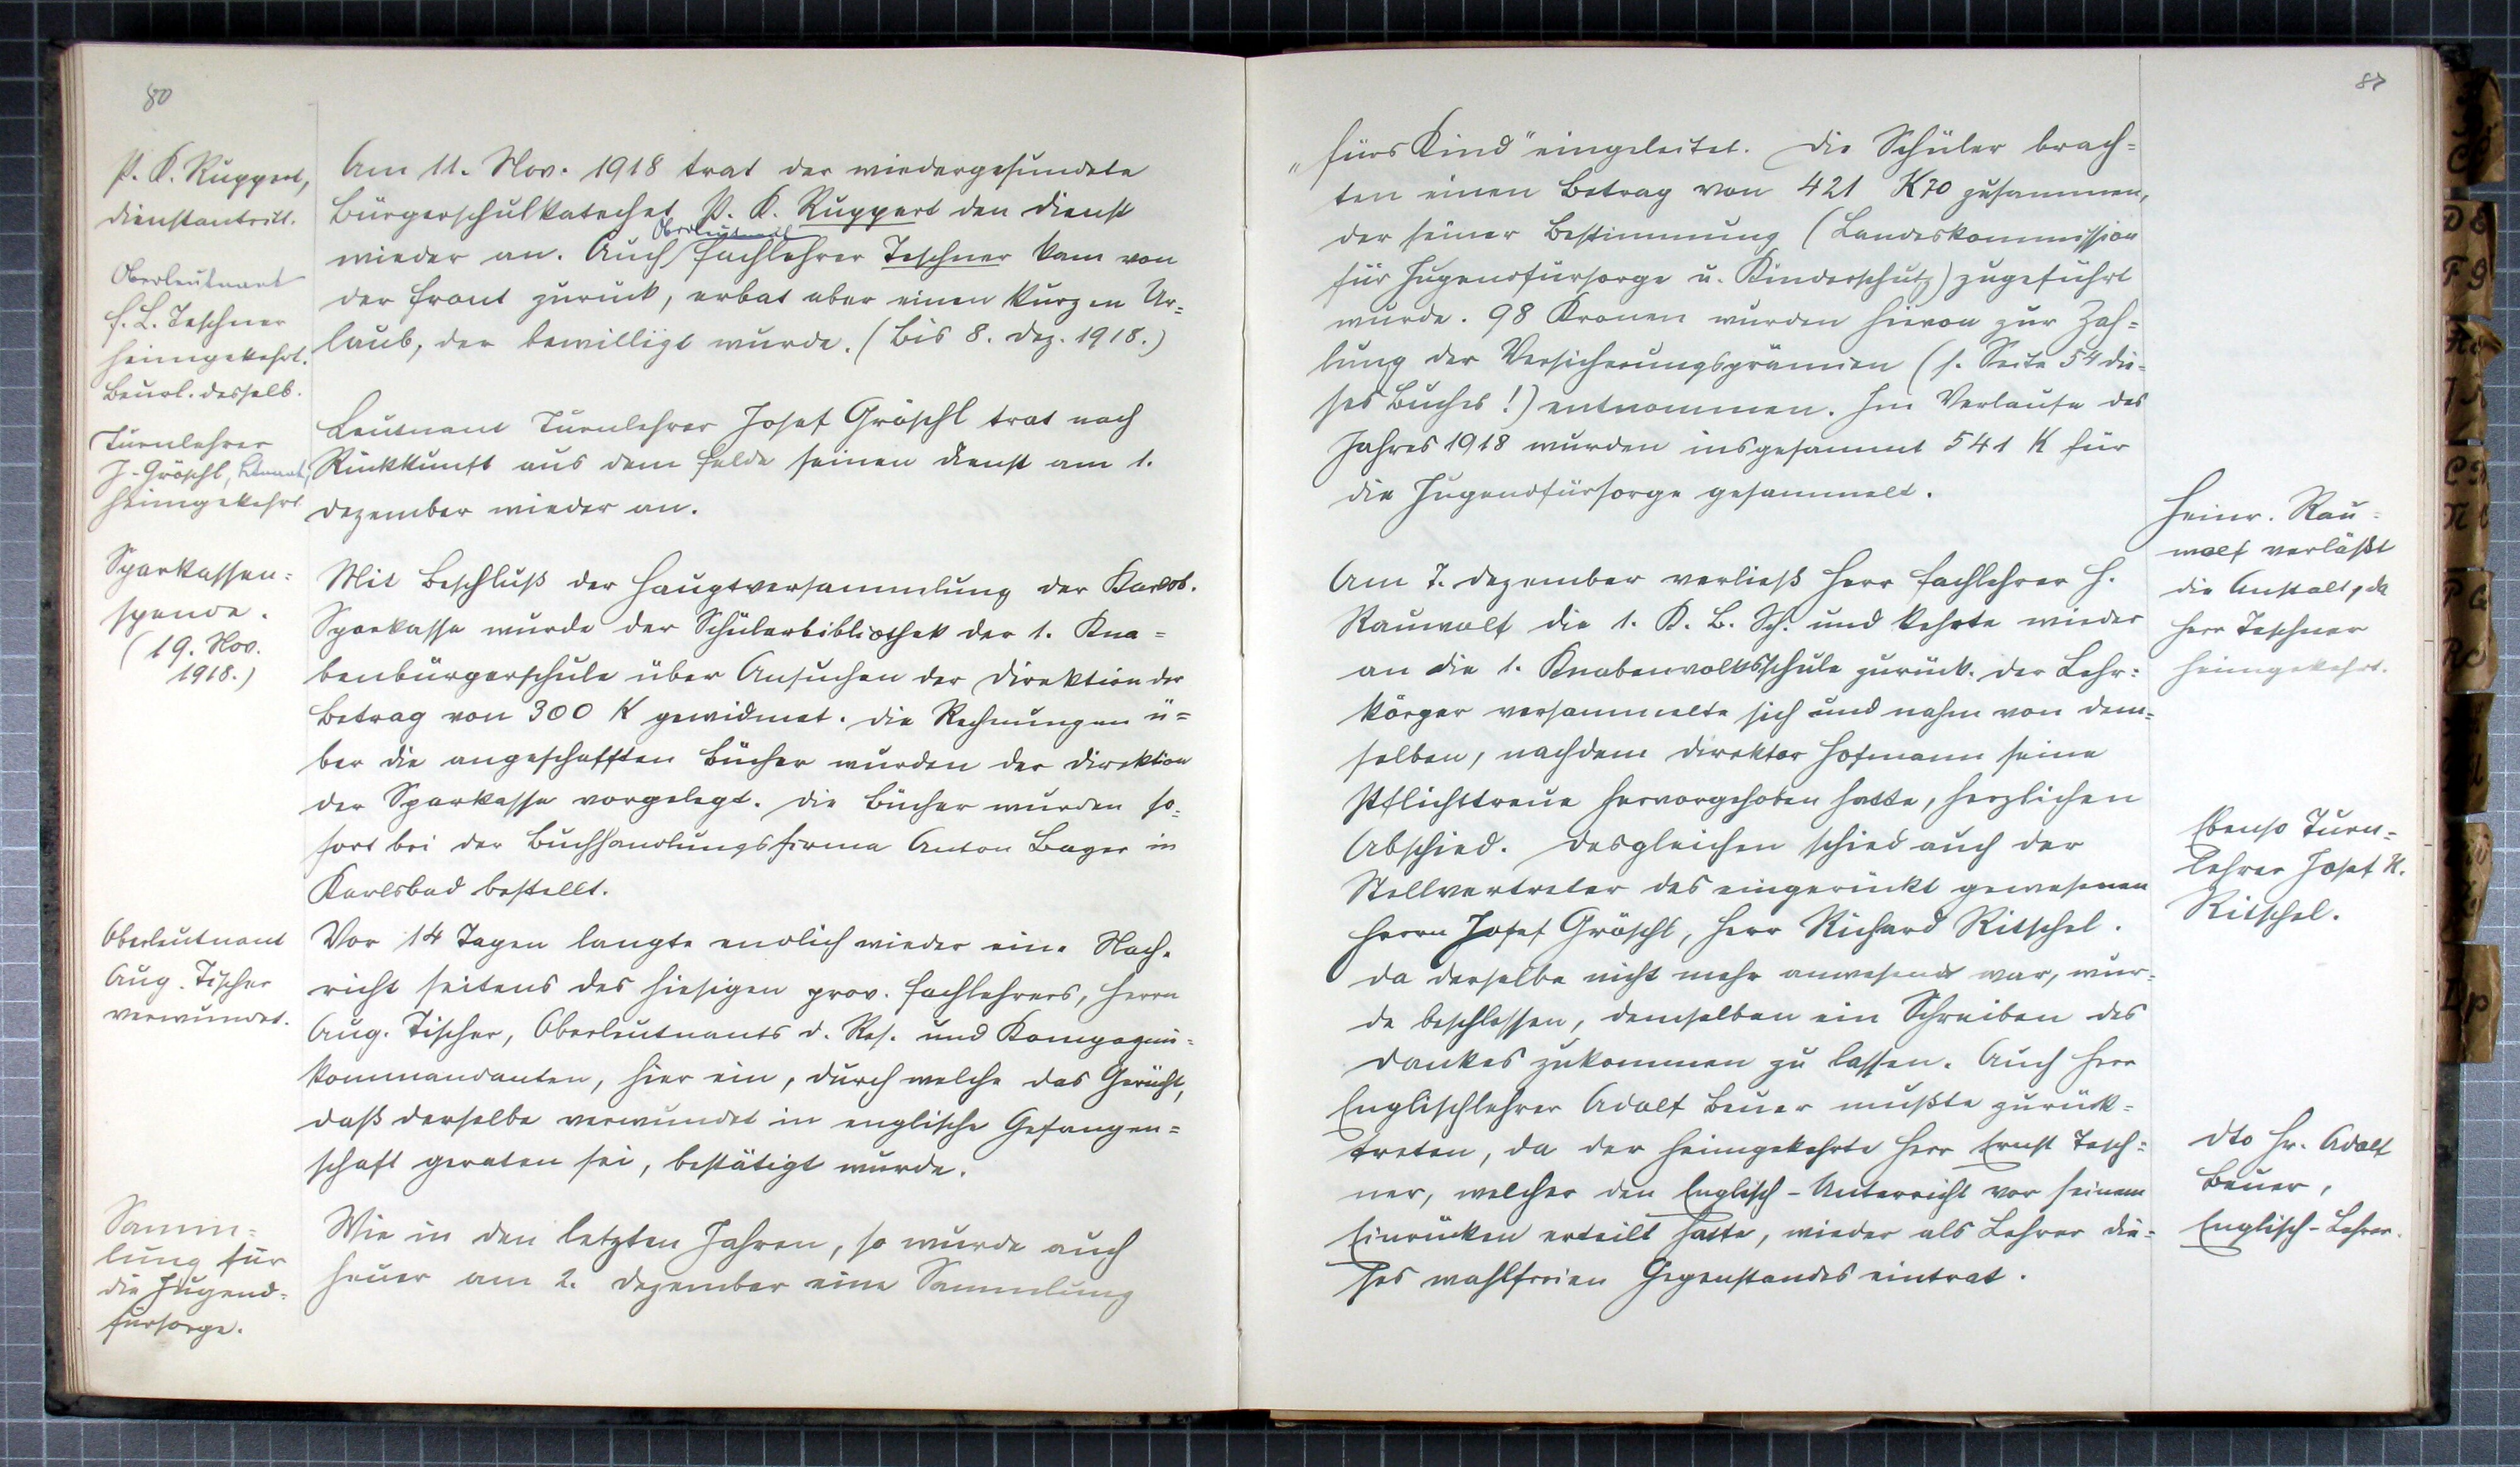 80
P. K. Ruppert,
Dienstantritt.
Am 11. Nov. 1918 trat der wiedergesundete
Bürgerschulkatechet P. K. Ruppert den Dienst
Oberleutnant
wieder an. Auch Fachlehrer Teschner kam von
der Front zurück, erbat aber einen kurzen Ur-
laub, der bewilligt wurde. (Bis 8. Dez. 1918.)
Oberleutnant
F. L. Teschner
heimgekehrt.
Beurl. desselb.
Leutnant Turnlehrer Josef Gröschl trat nach
Rückkunft aus dem Felde seinen Dienst am 1.
Dezember wieder an.
Turnlehrer
J. Gröschl, Leutnant,
heimgekehrt
Sparkassen-
spende.
(19. Nov.
1918.)
Mit Beschluß der Hauptversammlung der Karlsb.
Sparkasse wurde der Schülerbibliothek der 1. Kna-
benbürgerschule über Ansuchen der Direktion der
Betrag von 300 K gewidmet. Die Rechnungen ü-
ber die angeschafften Bücher wurden der Direktion
der Sparkasse vorgelegt. Die Bücher wurden so-
fort bei der Buchhandlungsfirma Anton in
Karlsbad bestellt.
Oberleutnant
Aug. Tischer
verwundet.
Vor 14 Tagen langte endlich wieder eine Nach-
richt seitens des hiesigen prov. Fachlehrers, Herrn
Aug. Tischer, Oberleutnants d. Res. und Kompagnie-
kommandanten, hier ein, durch welche das Gerücht,
daß derselbe verwundet in englische Gefangen-
schaft geraten sei, bestätigt wurde.
Samm-
lung für
die Jugend-
fürsorge.
Wie in den letzten Jahren, so wurde auch
heuer am 2. Dezember eine Sammlung
81
„fürs Kind" eingeleitet. Die Schüler brach-
ten einen Betrag von 421 K 70 zusammen,
der seiner Bestimmung (Landeskommission
für Jugendfürsorge u. Kinderschutz) zugeführt
wurde. 98 Kronen wurden hievon zur Zah-
lung der Versicherungsprämien (s. Seite 54 die-
ses Buches!) entnommen. Im Verlaufe des
Jahres 1918 wurden insgesammt 541 K für
die Jugendfürsorge gesammelt.
Heinr. Rau-
wolf verläßt
die Anstalt, da
Herr Teschner
heimgekehrt.
Am 7. Dezember verließ Herr Fachlehrer H.
Rauwolf die 1. K. B. Sch. und kehrte wieder
an die 1. Knabenvolksschule zurück. Der Lehr-
körper versammelte sich und nahm von dem-
selben, nachdem Direktor Hofmann seine
Pflichttreue hervorgehoben hatte, herzlichen
Abschied. Desgleichen schied auch der
Stellvertreter des eingerückt gewesenen
Herrn Josef Gröschl, Herr Richard Ritschel.
Da derselbe nicht mehr anwesend war, wur-
de beschlossen, demselben ein Schreiben des
Dankes zukommen zu lassen. Auch Herr
Englischlehrer Adolf Beuer mußte zurück-
treten, da der heimgekehrte Herr Ernst Tesch-
ner, welcher den Englisch-Unterricht vor seinem
Einrücken erteilt hatte, wieder als Lehrer die-
ses wahlfreien Gegenstandes eintrat.
Ebenso Turn-
lehrer Josef R.
Ritschel.
dto Hr. Adolf
Beuer,
Englisch-Lehrer.